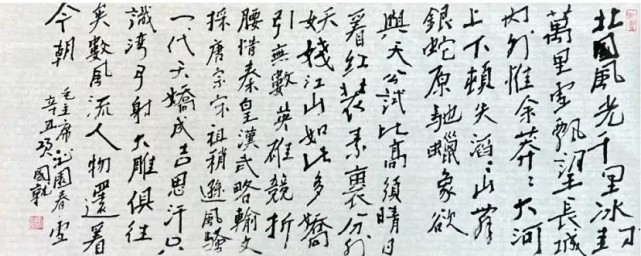 北國風光千里冰封
萬里雪飄望長城
內外惟余莽々大河
上下頓失滔々山舞
銀蛇原馳蠟象欲
與天公試比高須晴日
看紅裝素裹分外
妖嬈江山如此多嬌
引無數英雄競折
腰惜秦皇漢武略輸文
採唐宗宋祖稍遜風騷
一代天嬌成吉思汗只
識彎弓射大雕俱往
矣數風流人物還看
今朝
毛主席沁園春雪
辛丑項國